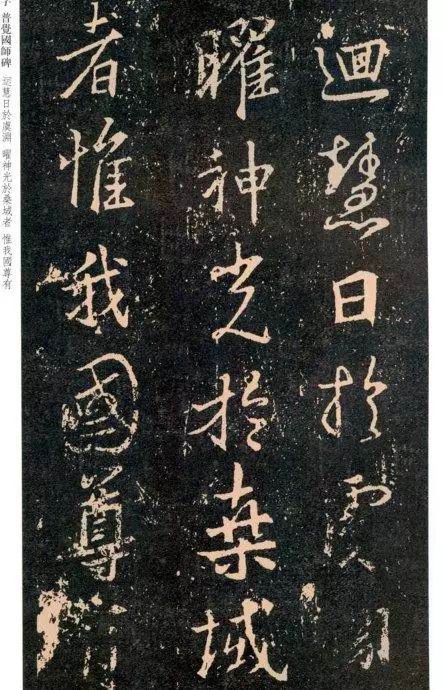 迴慧日於虞淵
曜神光於桑域
者惟我國尊有
普覺國師碑 迴慧日於虞淵 曜神光於桑域者 惟我國尊有